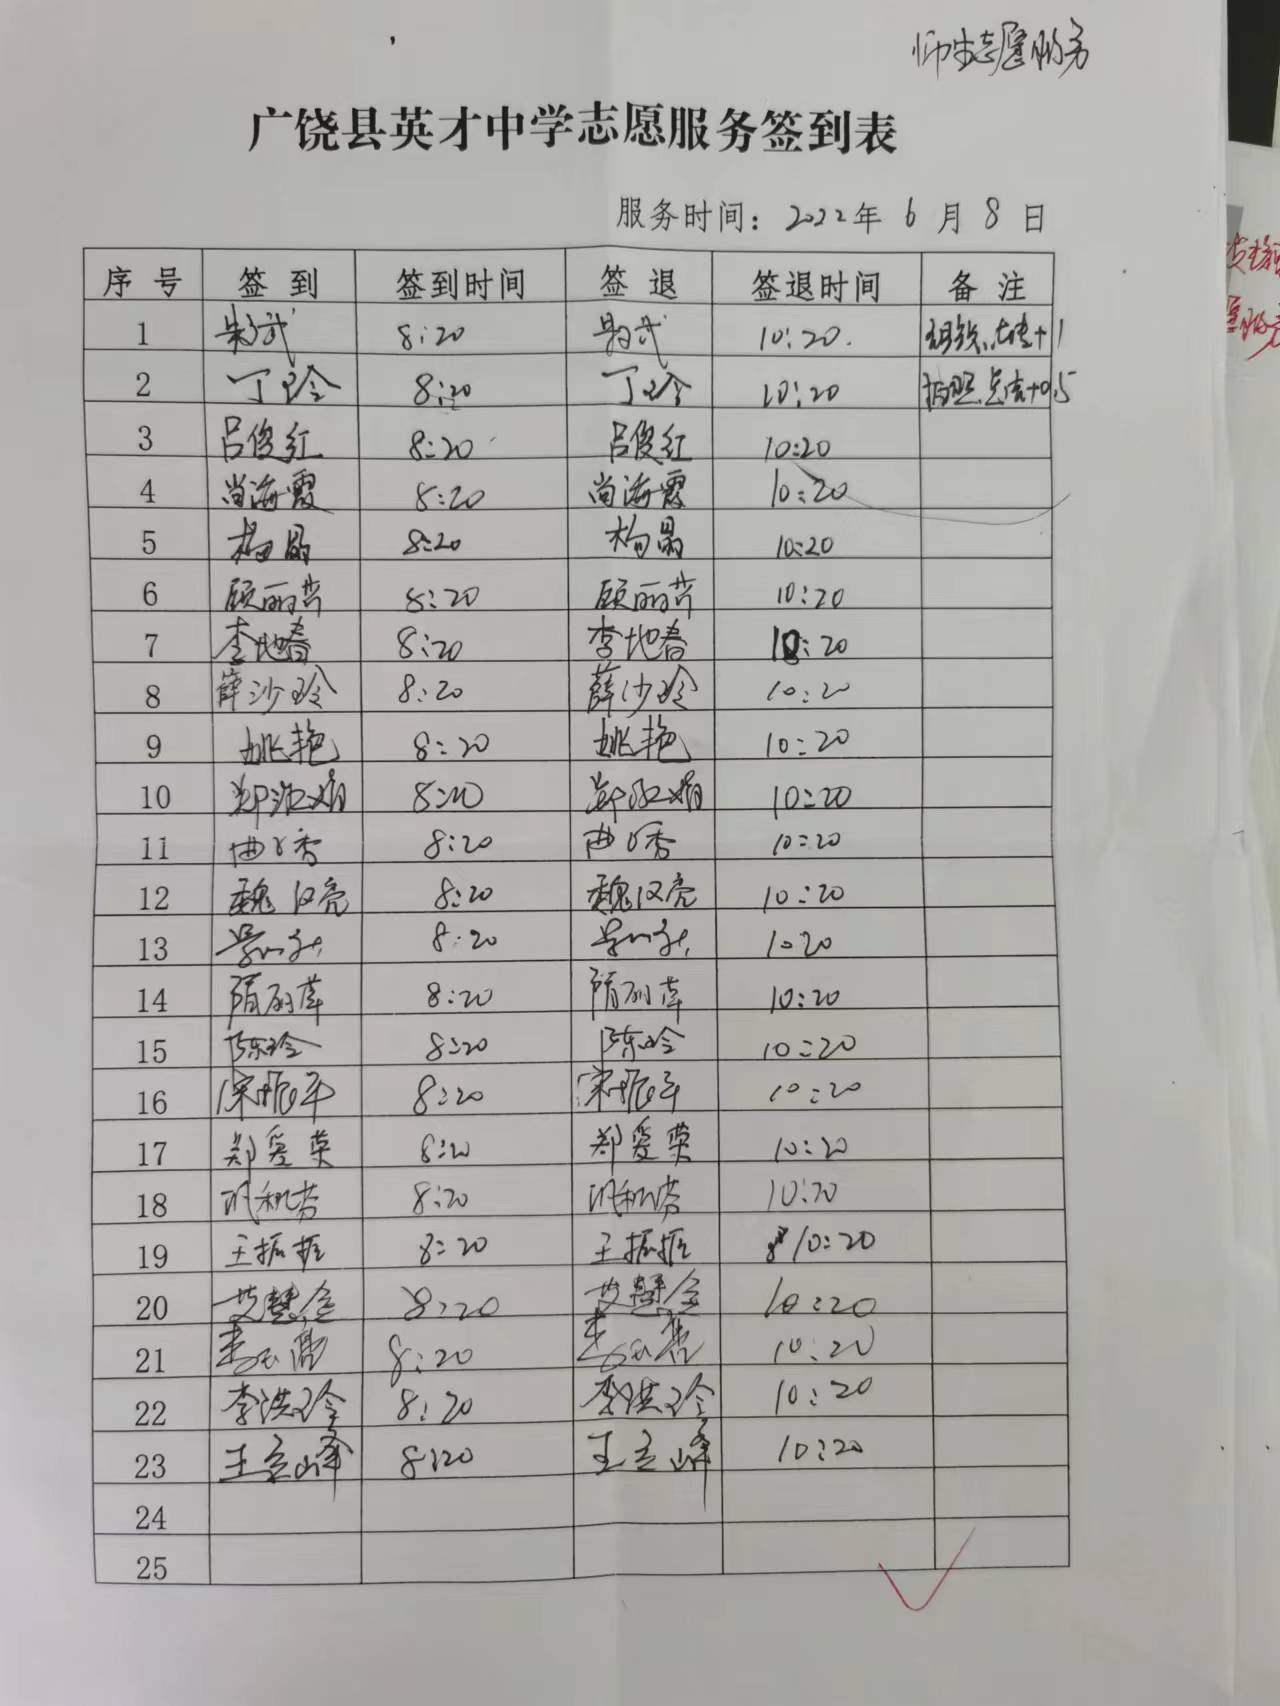 师生志愿服务
广饶县英才中学志愿服务签到表
服务时间：2022年 6 月 8 日
序号 签到 签到时间 签退 签退时间 备注
1 8:20 10:20. +1
2 丁玲 8:20 丁玲 10:20 拍照 +0.5
3 吕俊红 8:20 吕俊红 10:20
4 尚海霞 8:20 尚海霞 10:20
5 杨晶 8:20 杨晶 10:20
6 顾丽芳 8:20 顾丽芳 10:20
7 李地春 8:20 李地春 10:20
8 薛沙玲 8:20 薛沙玲 10:20
9 姚艳 8:20 姚艳 10:20
10 8:20 10:20
11 8:20 10:20
12 魏汉亮 8:20 魏汉亮 10:20
13 8:20 1020
14 8:20 10:20
15 陈玲 8:20 陈玲 10:20
16 宋振平 8:20 宋振平 10:20
17 郑爱荣 8:20 郑爱荣 10:20
18 8:20 10:20
19 王振振 8:20 王振振 10:20
20 艾慧金 8:20 艾慧金 10:20
21 8:20 10:20
22 李洪玲 8:20 李洪玲 10:20
23 王立峰 8:20 王立峰 10:20
24
25